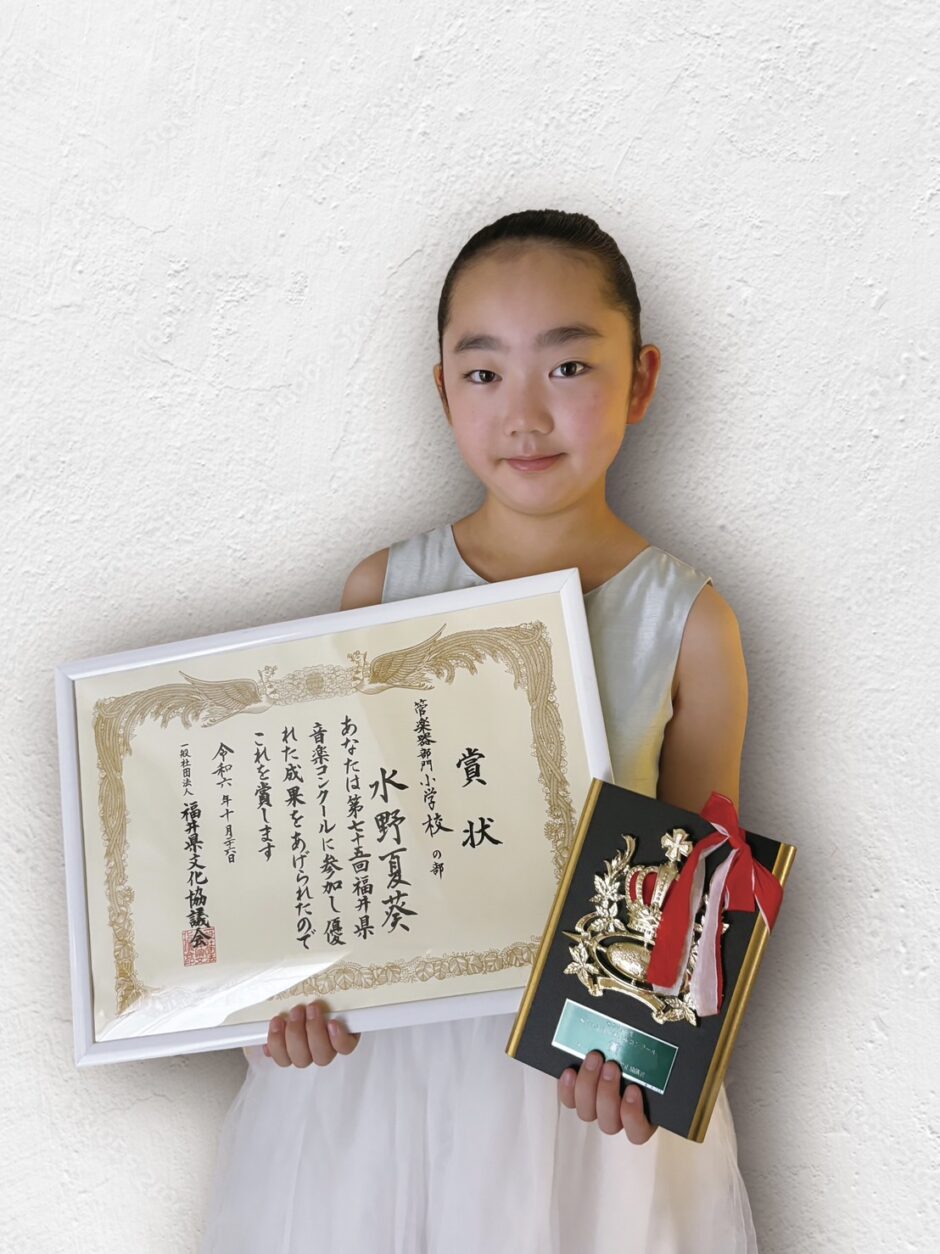 賞状
管楽器部門小学校の部
水野夏葵
あなたは第七十五回福井県
音楽コンクールに参加し優
れた成果をあげられたので
これを賞します
令和六年十月二十六日
一般社団法人 福井県文化協議会